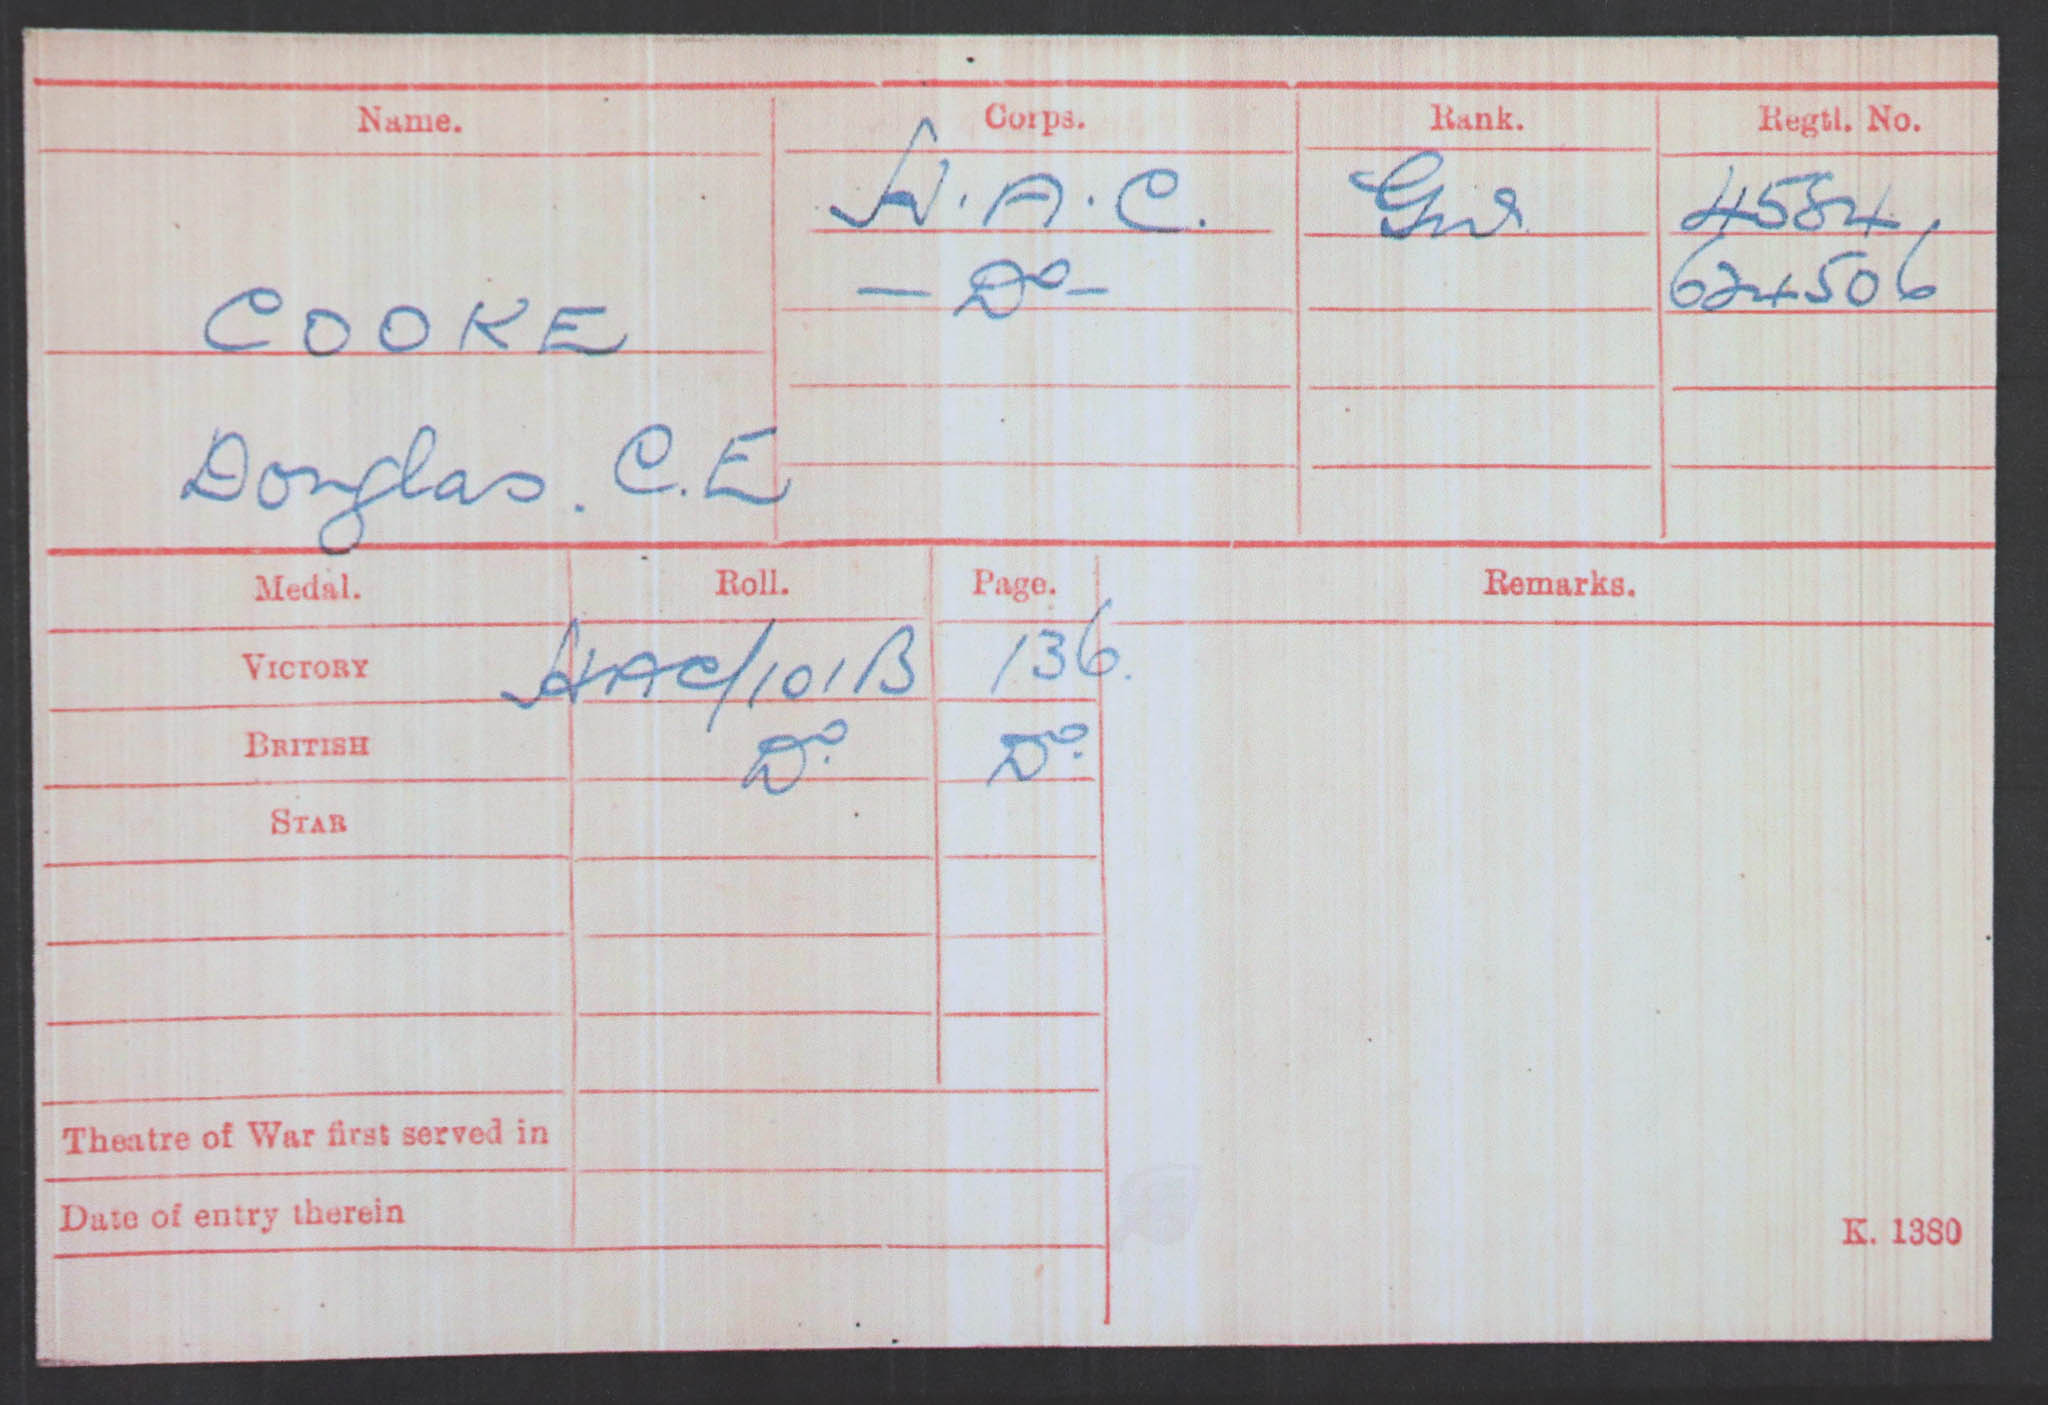 Name. Corps. Rank. Regtl. No.
H.A.C. Gnr 4584
COOKE — Do — 624506
Douglas. C.E
Medal. Roll. Page. Remarks.
VICTORY HAC/101B 136.
BRITISH Do. Do.
STAR
Theatre of War first served in
Date of entry therein
K. 1380